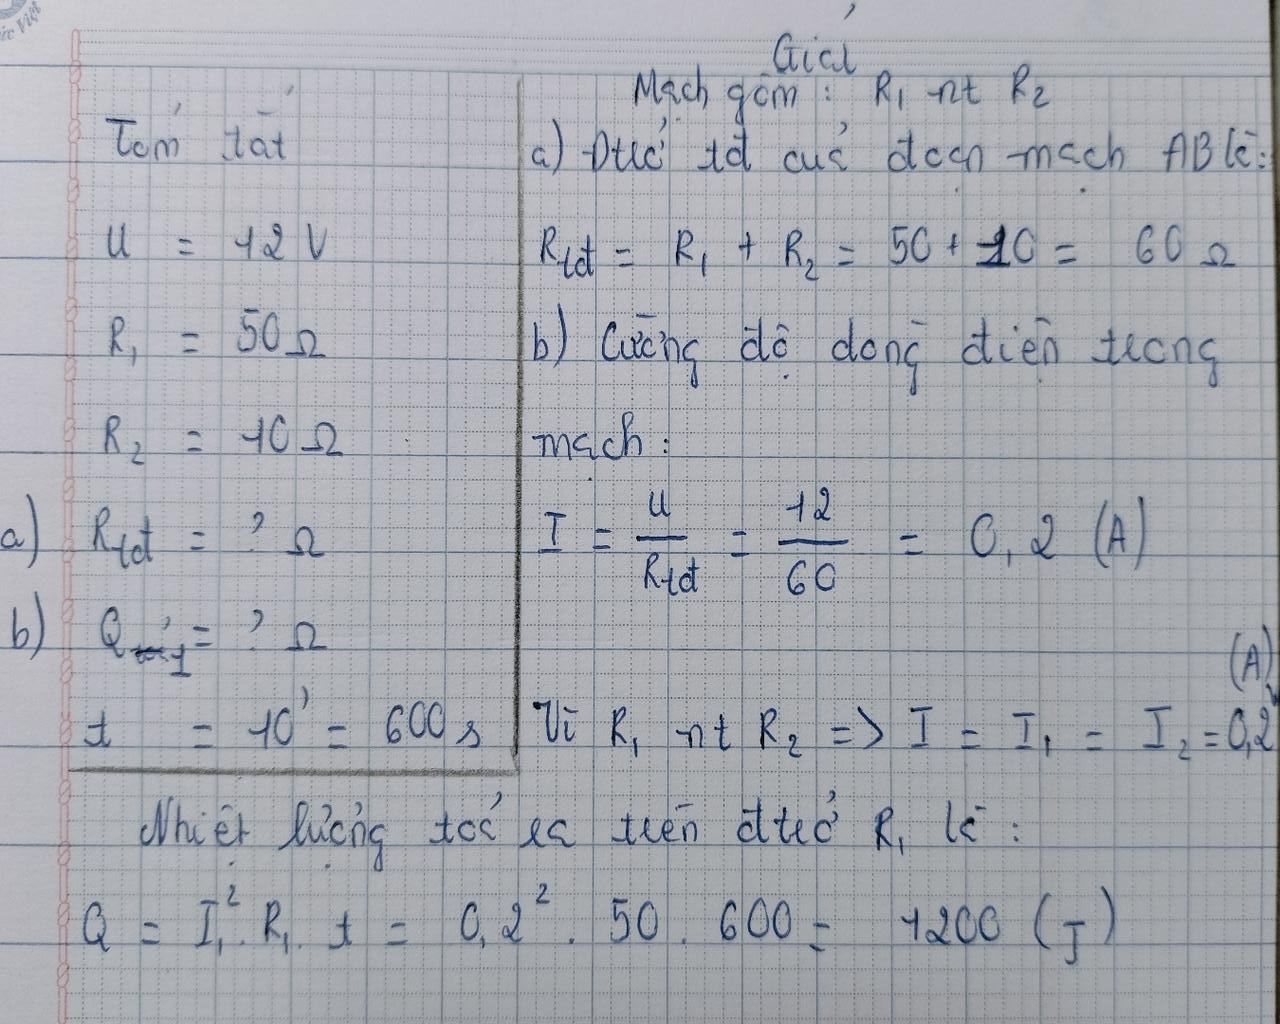 ức Việt
Giải
Mạch gồm : R₁ nt R₂
Tóm tắt
U = 12 V
R₁ = 50 Ω
R₂ = 10 Ω
a) Rtđ = ? Ω
b) Q₁ = ? Ω
t = 10' = 600 s
a) Đtrở tđ của đoạn mạch AB là:
Rtđ = R₁ + R₂ = 50 + 10 = 60 Ω
b) Cường độ dòng điện trong
mạch :
I = U/Rtđ = 12/60 = 0,2 (A)
Vì R₁ nt R₂ => I = I₁ = I₂ = 0,2 (A)
Nhiệt lượng toả ra trên đtrở R₁ là :
Q = I₁² . R₁ . t = 0,2² . 50 . 600 = 1200 (J)